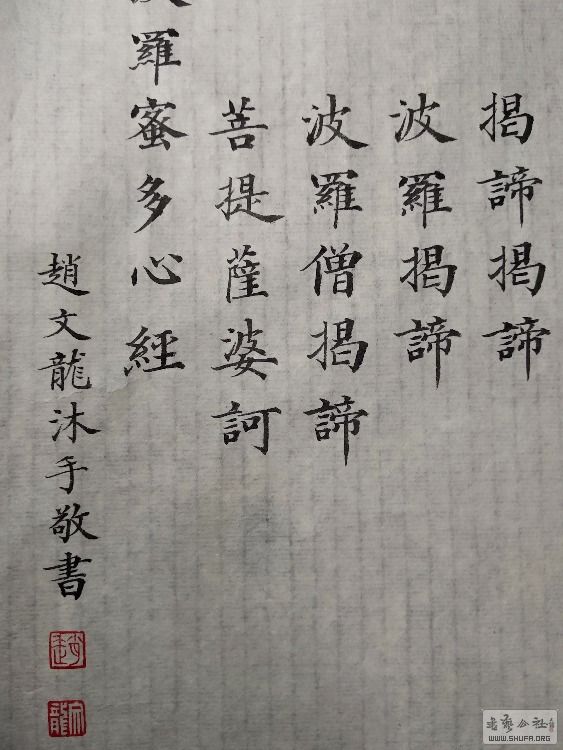 揭諦揭諦
波羅揭諦
波羅僧揭諦
菩提薩婆訶
波羅蜜多心經
趙文龍沐手敬書
趙
文龍
書藝公社
WWW.SHUFA.ORG